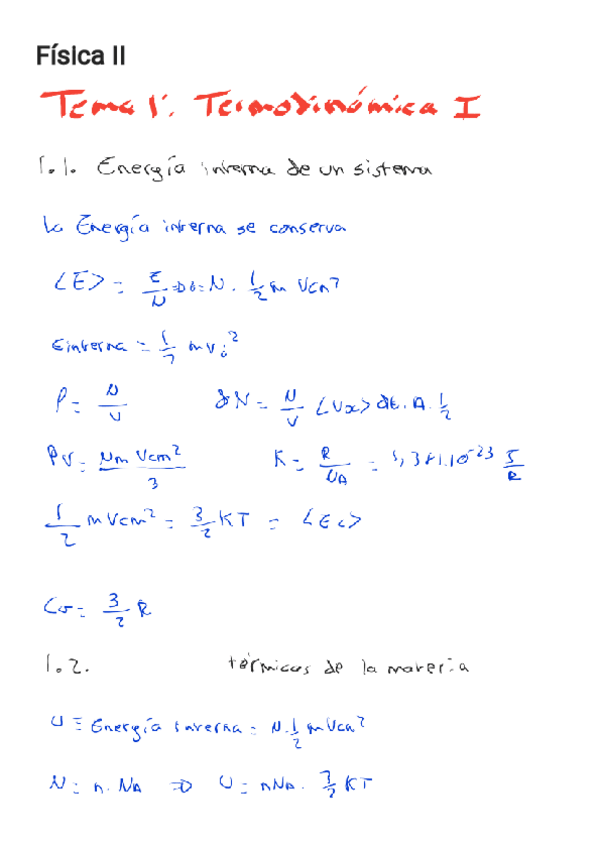 Física II
Tema 1. Termodinámica I
1.1. Energía interna de un sistema
La Energía interna se conserva
<E> = E/N => = N · 1/2 m Vcm²
Einterna = 1/2 mvi²
ρ = N/V dN = N/V <Vx> dt · A · 1/2
PV = Nm Vcm²/3 K = R/NA = 1,381·10⁻²³ J/K
1/2 m Vcm² = 3/2 KT = <Ec>
Cv = 3/2 R
1.2. térmicos de la materia
U ≡ Energía interna = N · 1/2 m Vcm²
N = n · NA => U = nNA · 3/2 KT